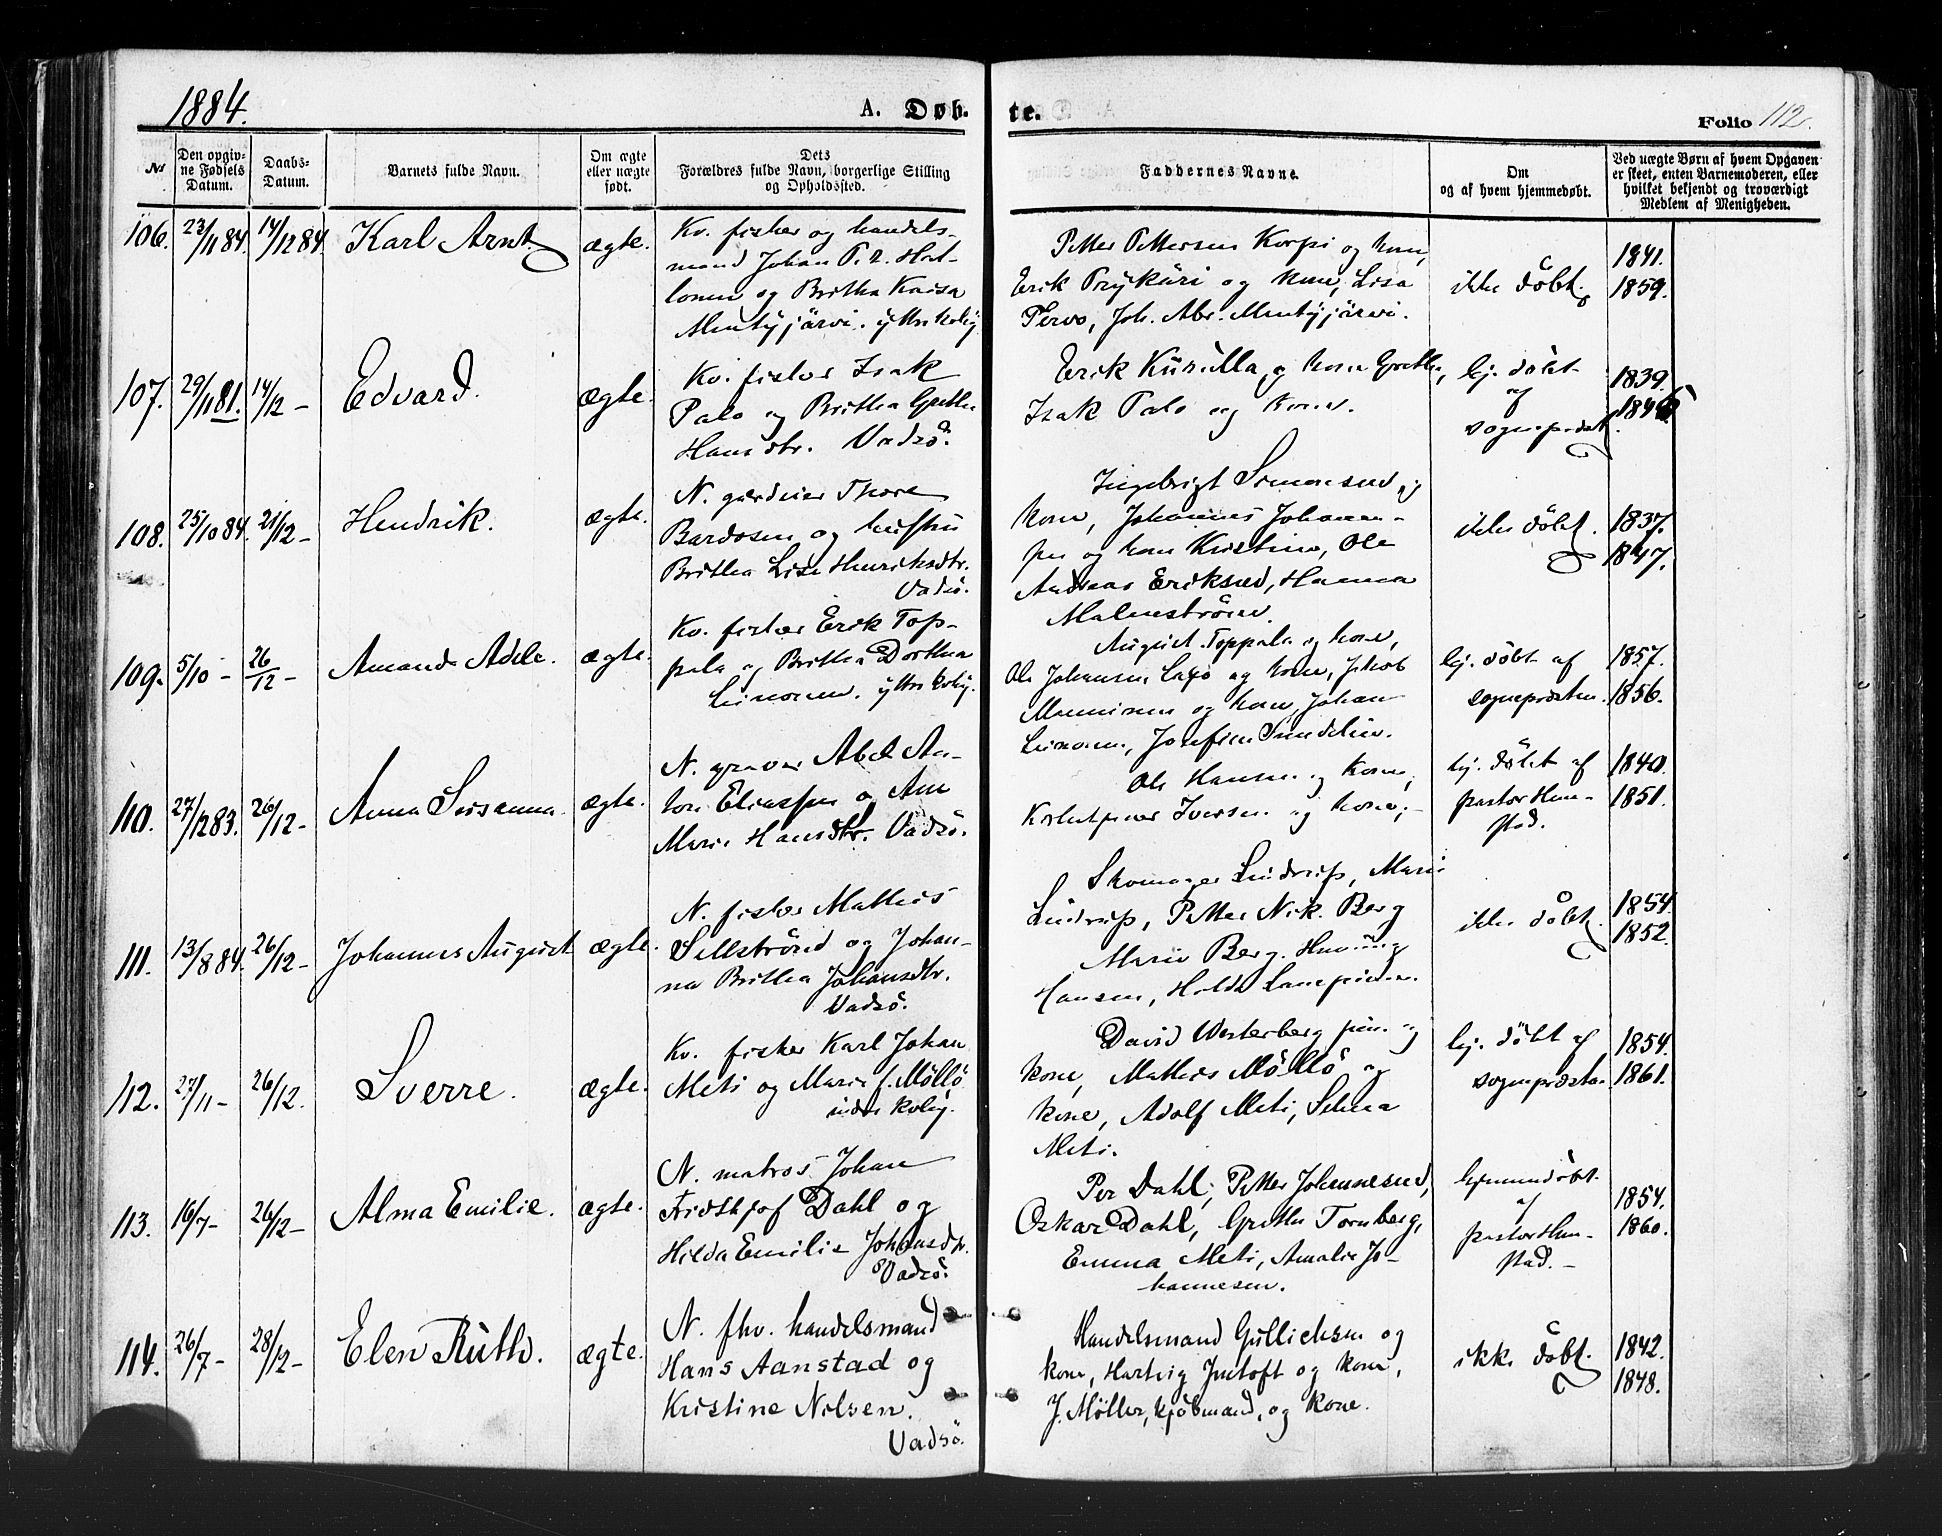 1884.
A. Døb-
te.
Folio 112.
No
Den opgiv-
ne Fødsels
Datum.
Daabs-
Datum.
Barnets fulde Navn.
Om ægte
eller uægte
født.
Dets
Forældres fulde Navn, borgerlige Stilling
og Opholdssted.
Faddernes Navne.
Om
og af hvem hjemmedøbt.
Ved uægte Børn af hvem Opgaven
er skeet, enten Barnemoderen, eller
hvilket bekjendt og troværdigt
Medlem af Menigheden.
106. 23/11 84. 14/12 84. Karl Arnt. ægte.
Kv. fisker og handels-
mand Johan P.
og Britha Kaisa
Mentyjärvi. ytthkoby.
Petter Pettersen Korpi og kone,
Erik Prykäri og kone, Lisa
Pervo, Joh. Abr. Mentyjärvi.
ikke döbt.
1841.
1859.
107. 29/11 81. 14/12 - Edvard. ægte.
Kv. fisker Isak
Palo og Britha Gretha
Hansdtr. Vadsö.
Erik og kone Gretha,
Isak Palo og kone.
hj. döbt
af
sogneprest.
1839.
108. 25/10 84. 21/12 - Hendrik. ægte.
N. gardeier Thore
Bardosen og hustru
Britha Lisa Henriksdtr.
Vadsö.
Ingebrigt Simonsen og
kone, Johannes Johannes-
sen og kone Kristine, Ole
Andreas Eriksen, Hanna
Malmström.
ikke döbt.
1837.
1847.
109. 5/10 - 26/12 - Amanda Adele. ægte.
Kv. fisker Erik Top-
pala og Britha Dorthea
Leinonen. ytthkoby.
August Toppala og kone,
Ole Johansen og kone, Jakob
Manninen og kone, Johan
Leinonen, Josefine Sundelin.
hj. döbt af
sognepresten.
1857.
1856.
110. 27/12 83. 26/12 - Anna Susanna. ægte.
N. graver Abel An-
ton Eliassen og Ane
Marie Hansdtr. Vadsö.
Ole Hansen og kone,
Iversen og kone.
hj. döbt af
pastor Hen-
stad.
1840.
1851.
111. 13/8 84. 26/12 - Johannes August ægte.
N. fisker Mathis
Sellströnd og Johan-
na Britha Johansdtr.
Vadsö.
Skomager Lindrup, Marie
Lindrup, Petter Nik. Berg
Marie Berg. Henning
Hansen, Hulda
ikke döbt.
1854.
1852.
112. 27/11 - 26/12. Sverre. ægte.
Kv. fisker Karl Johan
Meti og Marie f. Möllö
indre koby.
David Westerberg jun. og
kone, Mathis Möllö og
kone, Adolf Meti, Selma
Meti.
hj. döbt af
sognepresten
1854.
1861.
113. 16/7 - 26/12 - Alma Emilie. ægte.
N. matros Johan
Fridthjof Dahl og
Hilda Emilie Johansdtr.
Vadsö.
Per Dahl, Petter Johannesen,
Oskar Dahl, Grethe Tornberg,
Emma Meti, Amalie Jo-
hannesen.
hjemmedöbt
af
pastor Hen-
stad. -
1854.
1860.
114. 26/7 - 28/12 - Elen Ruth. ægte.
N. fhv. handelsmand
Hans Aanstad og
Kristine Nilsen.
Vadsö.
Handelsmand Gullichsen og
kone, Hartvig Jentoft og kone,
J. Møller, kjöbmand, og kone.
ikke döbt.
1842.
1848.